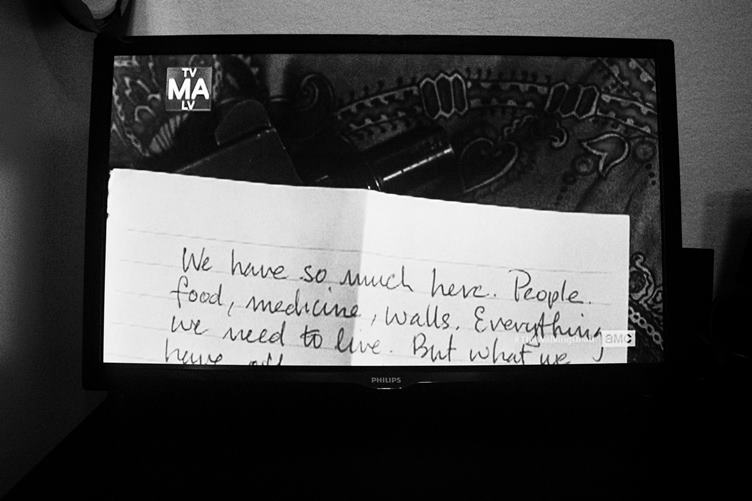 TV
MA
LV
We have so much here. People.
food, medicine, walls. Everything
we need to live. But what we
have
amc
PHILIPS